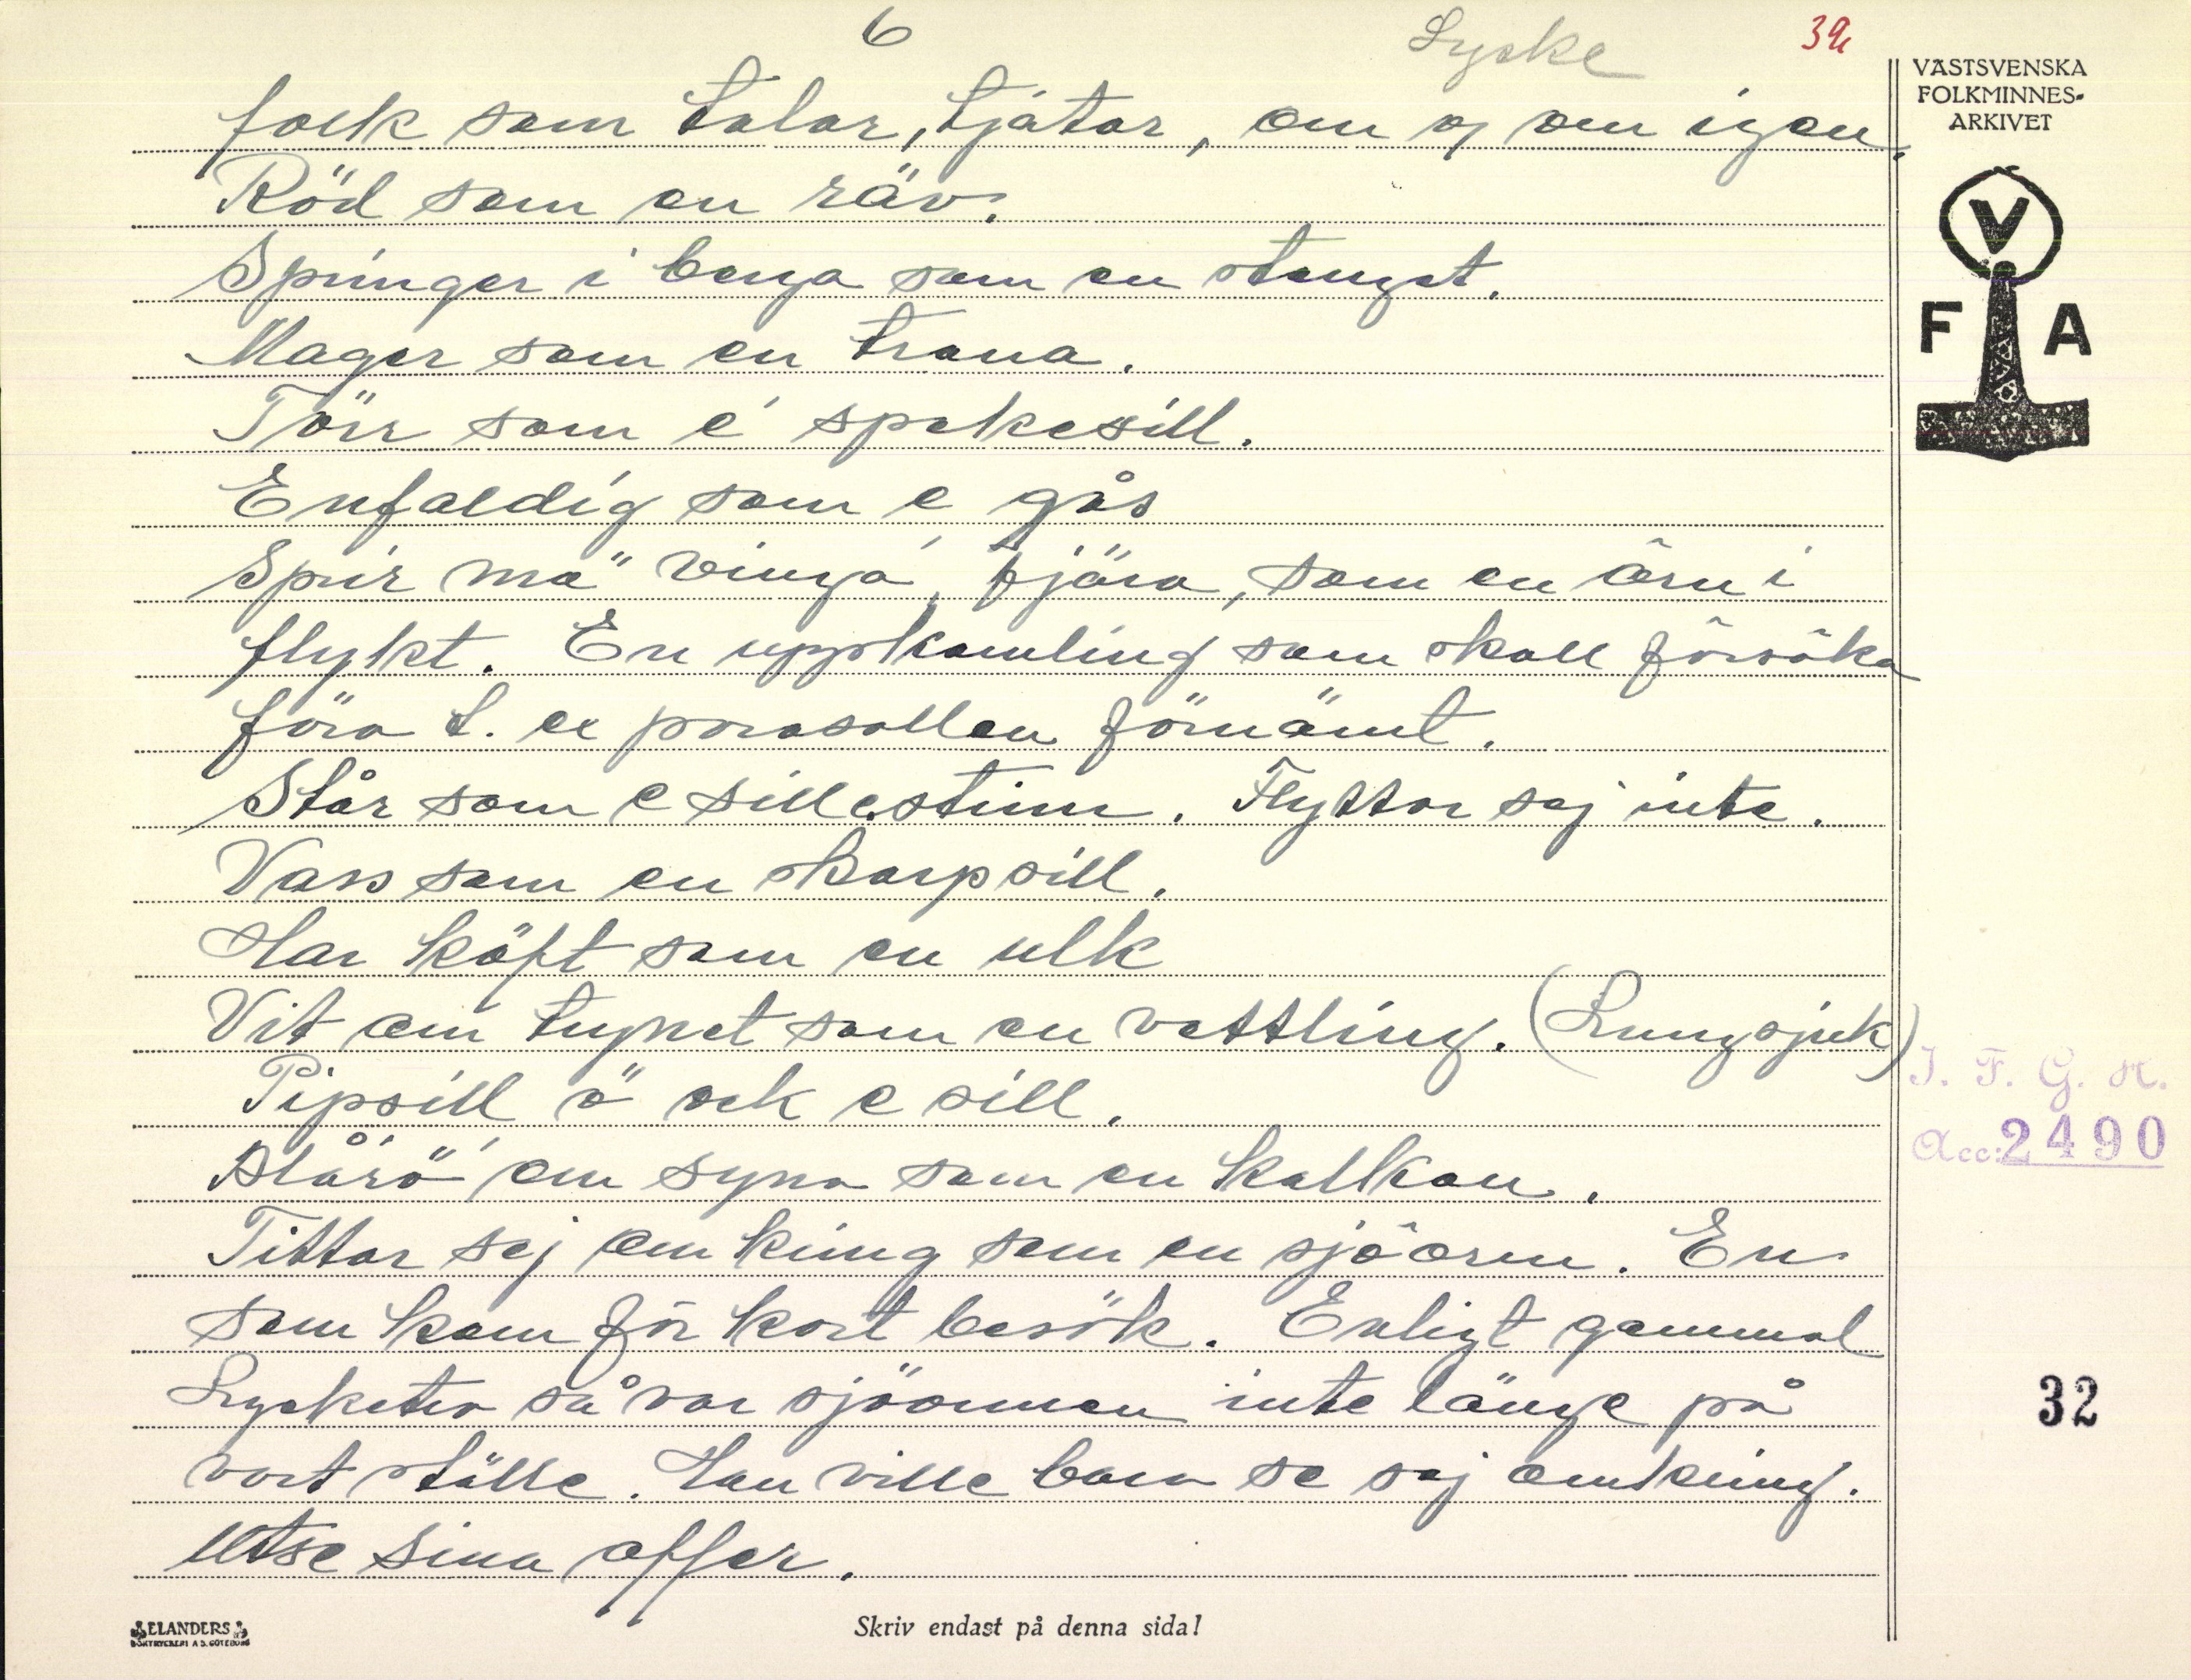 6
Lycke
VÄSTSVENSKA
FOLKMINNES-
ARKIVET
V
F A
folk som talar, tjatar, om o om igen.
Röd som en räv.
Springer i berga som en stenget.
Mager som en trana.
Törr som é spekesill.
Enfaldig som e gås
som en örn i
flykt. En uppkomling som skall försöka
föra t. ex parasollen förnämt.
Står som e sillestim. Flyttar sej inte.
Vass som en skarpsill.
Har käft som en ulk
Vit om trynet som en vettling. (Lungsjuk)
Pipsill ä ock e sill.
Blårö om syna som en kalkon.
Tittar sej omkring som en sjöorm. En
som kom för kort besök. Enligt gammal
Lycketro så var sjöormen inte länge på
vort ställe. Han ville bara se sej omkring.
Utse sina offer.
I. F. G. H.
Acc: 2490
32
ELANDERS
BOKTRYCKERI A.B. GÖTEBORG
Skriv endast på denna sida!